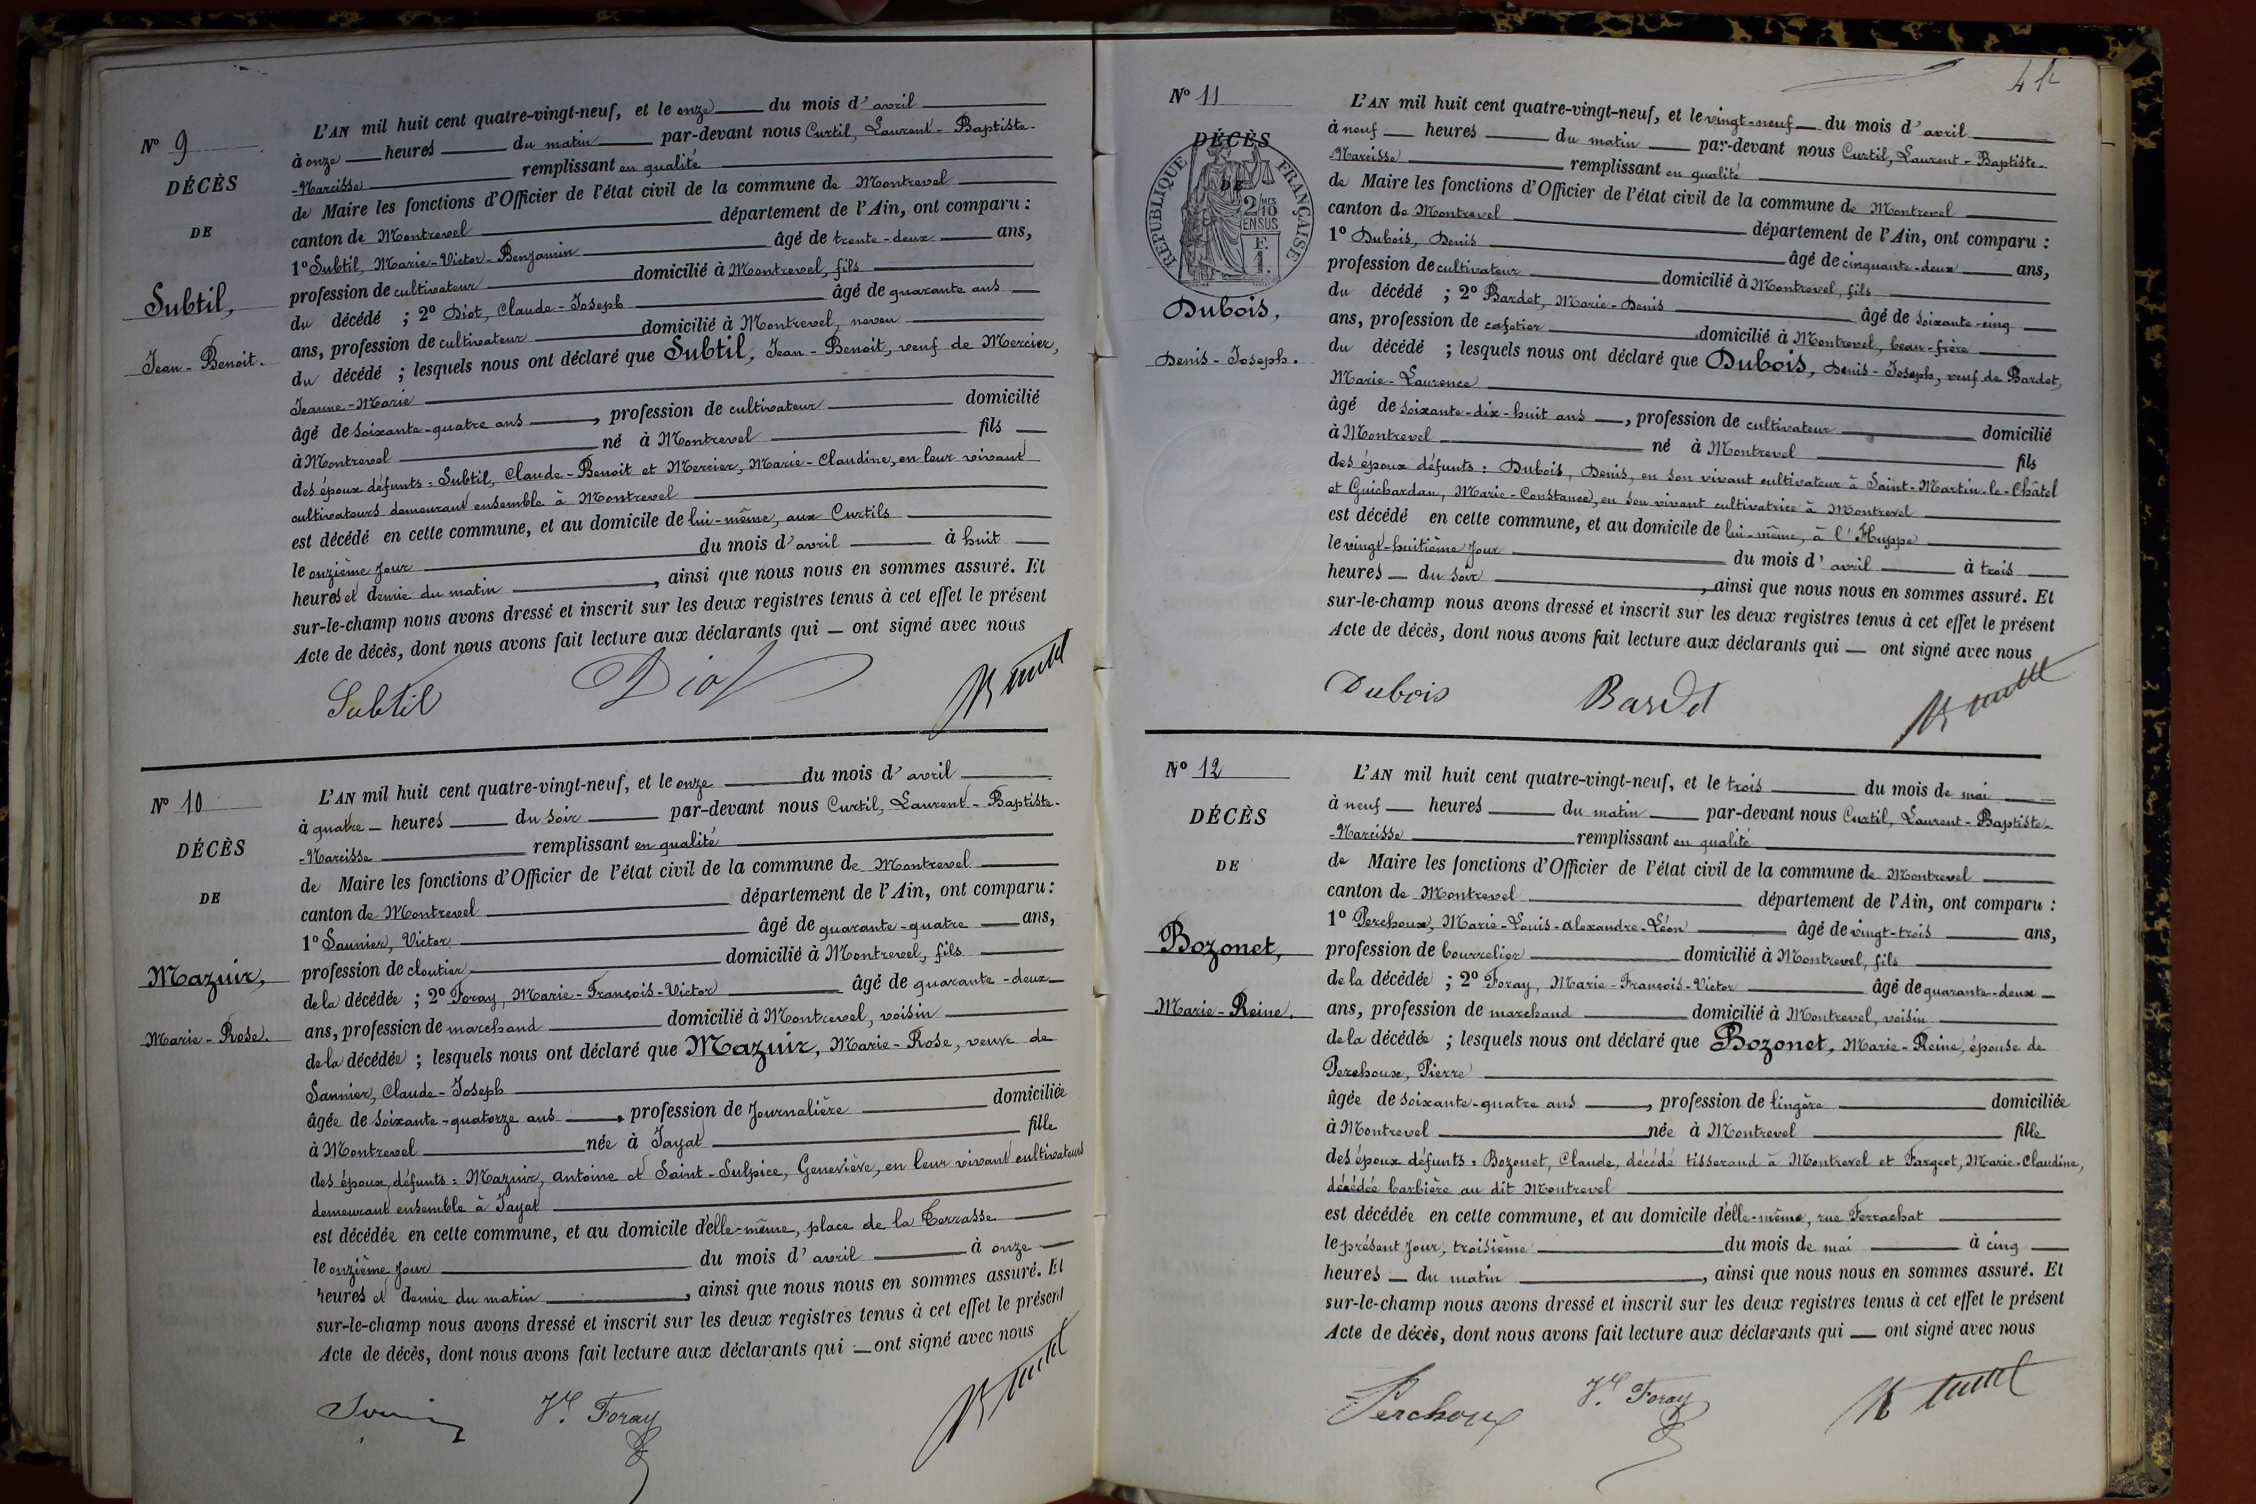 Nº 9
DÉCÈS
DE
Subtil,
Jean-Benoit.
L'AN mil huit cent quatre-vingt-neuf, et le onze du mois d'avril
à onze heures du matin par-devant nous Curtil, Laurent-Baptiste-
-Narcisse remplissant en qualité
de Maire les fonctions d'Officier de l'état civil de la commune de Montrevel
canton de Montrevel département de l'Ain, ont comparu :
1º Subtil, Marie-Victor-Benjamin âgé de trente-deux ans,
profession de cultivateur domicilié à Montrevel, fils
du décédé ; 2º Diot, Claude-Joseph âgé de quarante ans
ans, profession de cultivateur domicilié à Montrevel, neveu
du décédé ; lesquels nous ont déclaré que Subtil, Jean-Benoit, veuf de Mercier,
Jeanne-Marie
âgé de soixante-quatre ans, profession de cultivateur domicilié
à Montrevel né à Montrevel fils
des époux défunts : Subtil, Claude-Benoit et Mercier, Marie-Claudine, en leur vivant
cultivateurs demeurant ensemble à Montrevel
est décédé en cette commune, et au domicile de lui-même, aux Curtils
le onzième jour du mois d'avril à huit
heures et demie du matin, ainsi que nous nous en sommes assuré. Et
sur-le-champ nous avons dressé et inscrit sur les deux registres tenus à cet effet le présent
Acte de décès, dont nous avons fait lecture aux déclarants qui — ont signé avec nous
Subtil Diot
Nº 10
DÉCÈS
DE
Mazuir,
Marie-Rose.
L'AN mil huit cent quatre-vingt-neuf, et le onze du mois d'avril
à quatre heures du soir par-devant nous Curtil, Laurent-Baptiste-
-Narcisse remplissant en qualité
de Maire les fonctions d'Officier de l'état civil de la commune de Montrevel
canton de Montrevel département de l'Ain, ont comparu :
1º Saunier, Victor âgé de quarante-quatre ans,
profession de cloutier domicilié à Montrevel, fils
de la décédée ; 2º Foray, Marie-François-Victor âgé de quarante-deux
ans, profession de marchand domicilié à Montrevel, voisin
de la décédée ; lesquels nous ont déclaré que Mazuir, Marie-Rose, veuve de
Saunier, Claude-Joseph
âgée de soixante-quatorze ans, profession de Journalière domiciliée
à Montrevel née à Jayat fille
des époux défunts : Mazuir, Antoine et Saint-Sulpice, Geneviève, en leur vivant cultivateurs
demeurant ensemble à Jayat
est décédée en cette commune, et au domicile d'elle-même, place de la Terrasse
le onzième jour du mois d'avril à onze
heures et demie du matin, ainsi que nous nous en sommes assuré. Et
sur-le-champ nous avons dressé et inscrit sur les deux registres tenus à cet effet le présent
Acte de décès, dont nous avons fait lecture aux déclarants qui — ont signé avec nous
Vr. Foray
Nº 11
DÉCÈS
DE
RÉPUBLIQUE FRANÇAISE
2/10
EN SUS
F.
1.
Dubois,
Denis-Joseph.
L'AN mil huit cent quatre-vingt-neuf, et le vingt-neuf du mois d'avril
à neuf heures du matin par-devant nous Curtil, Laurent-Baptiste-
-Narcisse remplissant en qualité
de Maire les fonctions d'Officier de l'état civil de la commune de Montrevel
canton de Montrevel département de l'Ain, ont comparu :
1º Dubois, Denis âgé de cinquante-deux ans,
profession de cultivateur domicilié à Montrevel, fils
du décédé ; 2º Bardet, Marie-Denis âgé de soixante-cinq
ans, profession de cafetier domicilié à Montrevel, beau-frère
du décédé ; lesquels nous ont déclaré que Dubois, Denis-Joseph, veuf de Bardet,
Marie-Laurence
âgé de soixante-dix-huit ans, profession de cultivateur domicilié
à Montrevel né à Montrevel fils
des époux défunts : Dubois, Denis, en son vivant cultivateur à Saint-Martin-le-Châtel
et Guichardan, Marie-Constance, en son vivant cultivatrice à Montrevel
est décédé en cette commune, et au domicile de lui-même, à l'Huppe
le vingt-huitième jour du mois d'avril à trois
heures du soir, ainsi que nous nous en sommes assuré. Et
sur-le-champ nous avons dressé et inscrit sur les deux registres tenus à cet effet le présent
Acte de décès, dont nous avons fait lecture aux déclarants qui — ont signé avec nous
Dubois Bardet
Nº 12
DÉCÈS
DE
Bozonet,
Marie-Reine.
L'AN mil huit cent quatre-vingt-neuf, et le trois du mois de mai
à neuf heures du matin par-devant nous Curtil, Laurent-Baptiste-
-Narcisse remplissant en qualité
de Maire les fonctions d'Officier de l'état civil de la commune de Montrevel
canton de Montrevel département de l'Ain, ont comparu :
1º Perchoux, Marie-Louis-Alexandre-Léon âgé de vingt-trois ans,
profession de bourrelier domicilié à Montrevel, fils
de la décédée ; 2º Foray, Marie-François-Victor âgé de quarante-deux
ans, profession de marchand domicilié à Montrevel, voisin
de la décédée ; lesquels nous ont déclaré que Bozonet, Marie-Reine, épouse de
Perchoux, Pierre
âgée de soixante-quatre ans, profession de lingère domiciliée
à Montrevel née à Montrevel fille
des époux défunts : Bozonet, Claude, décédé tisserand à Montrevel et Fargeot, Marie-Claudine,
décédée barbière au dit Montrevel
est décédée en cette commune, et au domicile d'elle-même, rue Ferrachat
le présent jour, troisième du mois de mai à cinq
heures du matin, ainsi que nous nous en sommes assuré. Et
sur-le-champ nous avons dressé et inscrit sur les deux registres tenus à cet effet le présent
Acte de décès, dont nous avons fait lecture aux déclarants qui — ont signé avec nous
Perchoux Vr. Foray